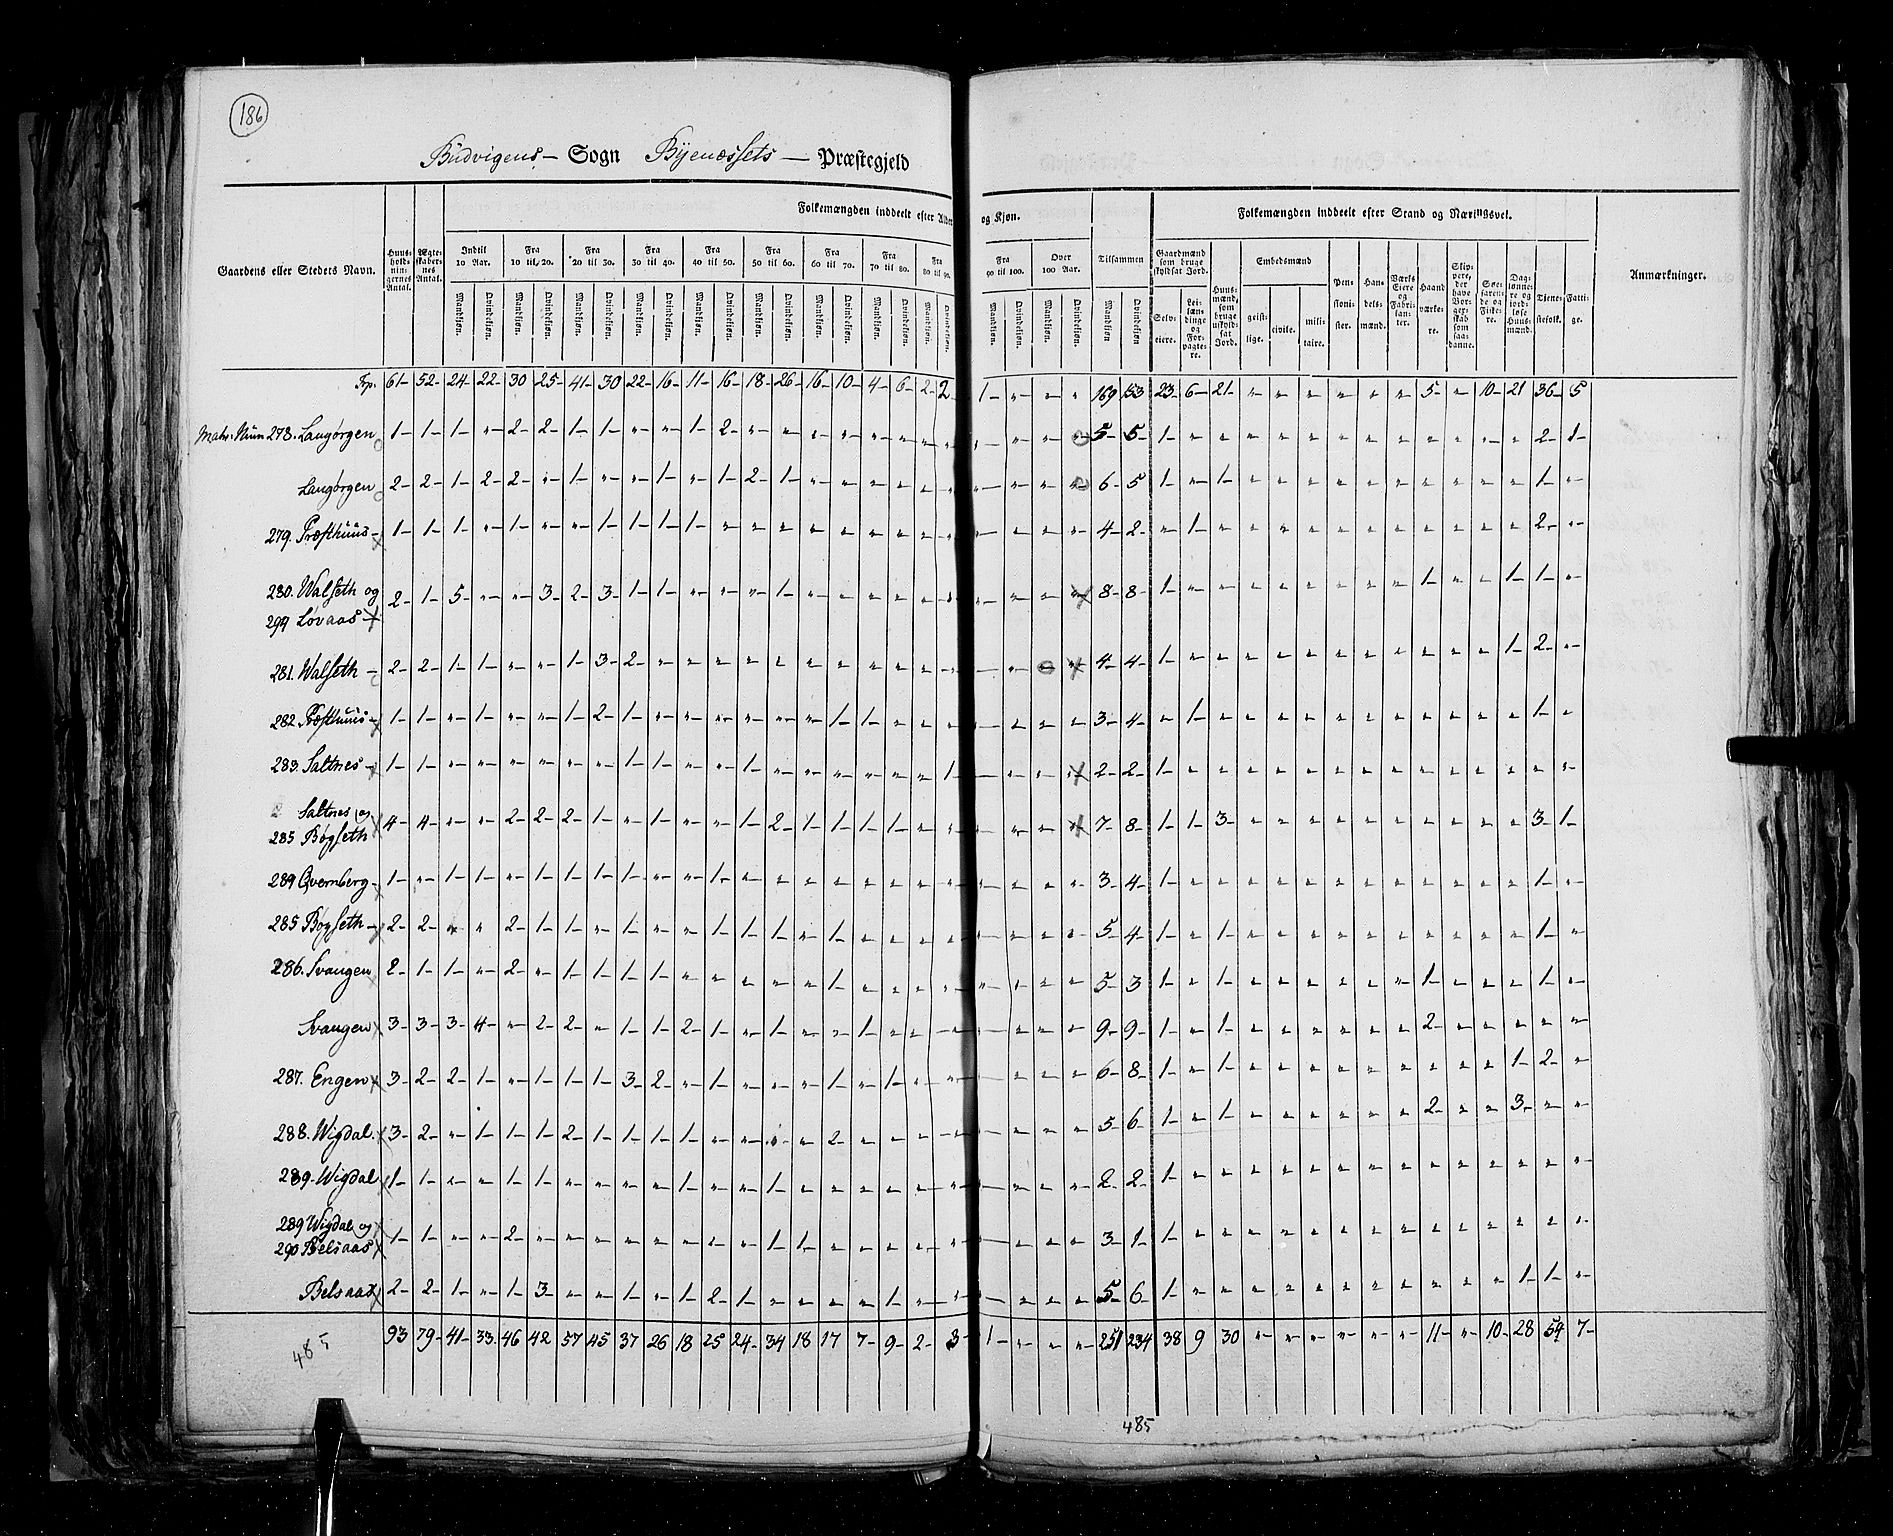 186
Budvigens – Sogn Byenæssets – Præstegjeld
Folkemængden inddeelt efter Alder og Kjøn.
Folkemængden inddeelt efter Stand og Næringsvei.
Gaardens eller Steders Navn.
Huusholdningernes Antal.
Ægteskabernes Antal.
Indtil 10 Aar.
Fra 10 til 20.
Fra 20 til 30.
Fra 30 til 40.
Fra 40 til 50.
Fra 50 til 60.
Fra 60 til 70.
Fra 70 til 80.
Fra 80 til 90.
Fra 90 til 100.
Over 100 Aar.
Tilsammen
Mandkjøn. Qvindekjøn.
Gaardmænd som bruge skyldsat Jord.
Selveiere.
Leilændinge og Forpagtere.
Huusmænd, som bruge uskyldsat Jord.
Embedsmænd
geistlige.
civile.
militaire.
Pensionister.
Handelsmænd.
Værks Eiere og Fabrikanter.
Haandværkere.
Skippere, der have Borgerskab som saadanne.
Søefarende og Fiskere.
Dagslønnere og jordløse Huusmænd.
Tjenestefolk.
Fattige.
Anmærkninger.
Trp. 61 – 52 – 24 – 22 – 30 25 – 41 – 30 22 – 16 – 11 – 16 – 18 – 26 – 16 – 10 – 4 – 6 – 2 – 2 – 1 – " " " 169 153 23 – 6 – 21 – " " " " " " 5 – " 10 – 21 36 – 5
Matr: Num 278. Langørgen 1 – 1 – 1 – " 2 – 2 – 1 – 1 – " " 1 – 2 – " " " " " " " " " " " " 5 – 5 – 1 – " " " " " " " " " " " " 2 – 1 –
Langørgen 2 – 2 – 1 – 2 – 2 – " 1 – " " 1 – 1 – 1 – 2 – 1 – " " " " " " " " " " 6 – 5 1 – " 1 – " " " " " " " " " " 1 – "
279. Præsthuus – 1 – 1 – 1 – " 1 – " " 1 – 1 – 1 – 1 – " " " " " " " " " " " " " 4 – 2 – " 1 – " " " " " " " " " " " 2 – "
280. Walseth og
294 Løvaas – 2 – 1 – 5 – " " 3 – 2 – 3 – 1 – 1 – " " " 1 – " " " " " " " " " " 8 – 8 – 1 – " " " " " " " " 1 – " " 1 – 1 – "
281. Walseth – 2 – 2 – 1 – 1 – " " 1 – 3 – 2 – " " " " " " " " " " " " " " " 4 – 4 – 1 – " " " " " " " " " " " 1 – 2 – "
282 Præsthuus – 1 – 1 – " 1 – " " 1 – 2 – 1 – " " " " " " 1 – 1 – " " " " " " " 3 – 4 – " 1 – " " " " " " " " " " " 1 – "
283. Saltnes – 1 – 1 – " " " " " " 1 – 1 – " " 1 – " " " " " " 1 – " " " " 2 – 2 – 1 – " " " " " " " " " " " " " "
Saltnes og
285 Bøgseth 4 – 4 – " " 2 – 2 – 2 – 1 – " 1 – " " 1 – 2 – 1 – 1 – 1 – 1 – " " " " " " 7 – 8 – 1 – 1 – 3 – " " " " " " " " " " 3 – 1 –
284 Qvernberg – 1 – " 1 – 1 – " 1 – 1 – 1 – 1 – " " 1 – " " " " " " " " " " " " 3 – 4 – 1 – " " " " " " " " " " " " 1 – "
285 Bøgseth – 2 – 2 – " " 2 – 1 – 1 – " 1 – " " 1 – 1 – 1 – " 1 – " " " " " " " " 5 – 4 – 1 – " 1 – " " " " " " " " " " 1 – "
286. Svangen 2 – 1 – 1 – " 2 – " 1 – 1 – 1 – 1 – " " " " " 1 – " " " " " " " " 5 – 3 1 – " 1 – " " " " " " 1 – " " " 1 – "
Svangen 3 – 3 – 3 – 4 – " 2 – 2 – " 1 – 1 – 2 – 1 – " 1 – " " 1 – " " " " " " " 9 – 9 – 1 – " 1 – " " " " " " 2 – " " " " "
287. Engen 3 – 2 – 2 – 1 – " 1 – 1 – 1 – 3 – 2 – " 1 – " " " 1 – " 1 – " " " " " " 6 – 8 – 1 – " 1 – " " " " " " " " " 1 – 2 – "
288. Wigdal. 3 – 2 – " 1 – 1 – 1 – 2 – 1 – 1 – 1 – 1 – " " " " 2 – " " " " " " " " 5 – 6 – 1 – " 1 – " " " " " " 2 – " " 3 – " "
289. Wigdal 1 – 1 – " " 1 – 1 – " " " " 1 – " " 1 – " " " " " " " " " " 2 – 2 – 1 – " " " " " " " " " " " " " "
289 Wigdal og
290 Belsaas 1 – 1 – " " 2 – " " " " " " " " 1 – 1 – " " " " " " " " " 3 – 1 – 1 – " " " " " " " " " " " " " "
Belsaas 2 – 2 – 1 – " 1 – 3 – " " 1 – " 1 – 2 – 1 – " " " " 1 – " " " " " " 5 – 6 – 1 – " " " " " " " " " " " 1 – 1 – "
93 79 – 41 – 33 – 46 42 57 45 37 26 18 25 24 – 34 18 17 7 – 9 – 2 – 3 – 1 – " " " 251 234 38 9 30 " " " " " " 11 – " 10 – 28 54 7 –
485
485